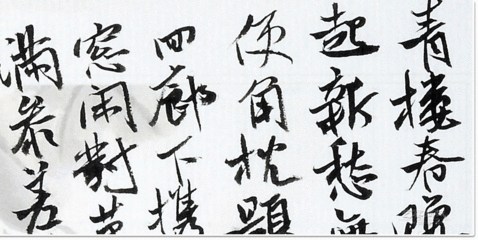 青樓春晚
起新愁無
便角枕題
回廊下攜
窓閑對芭
滿參差